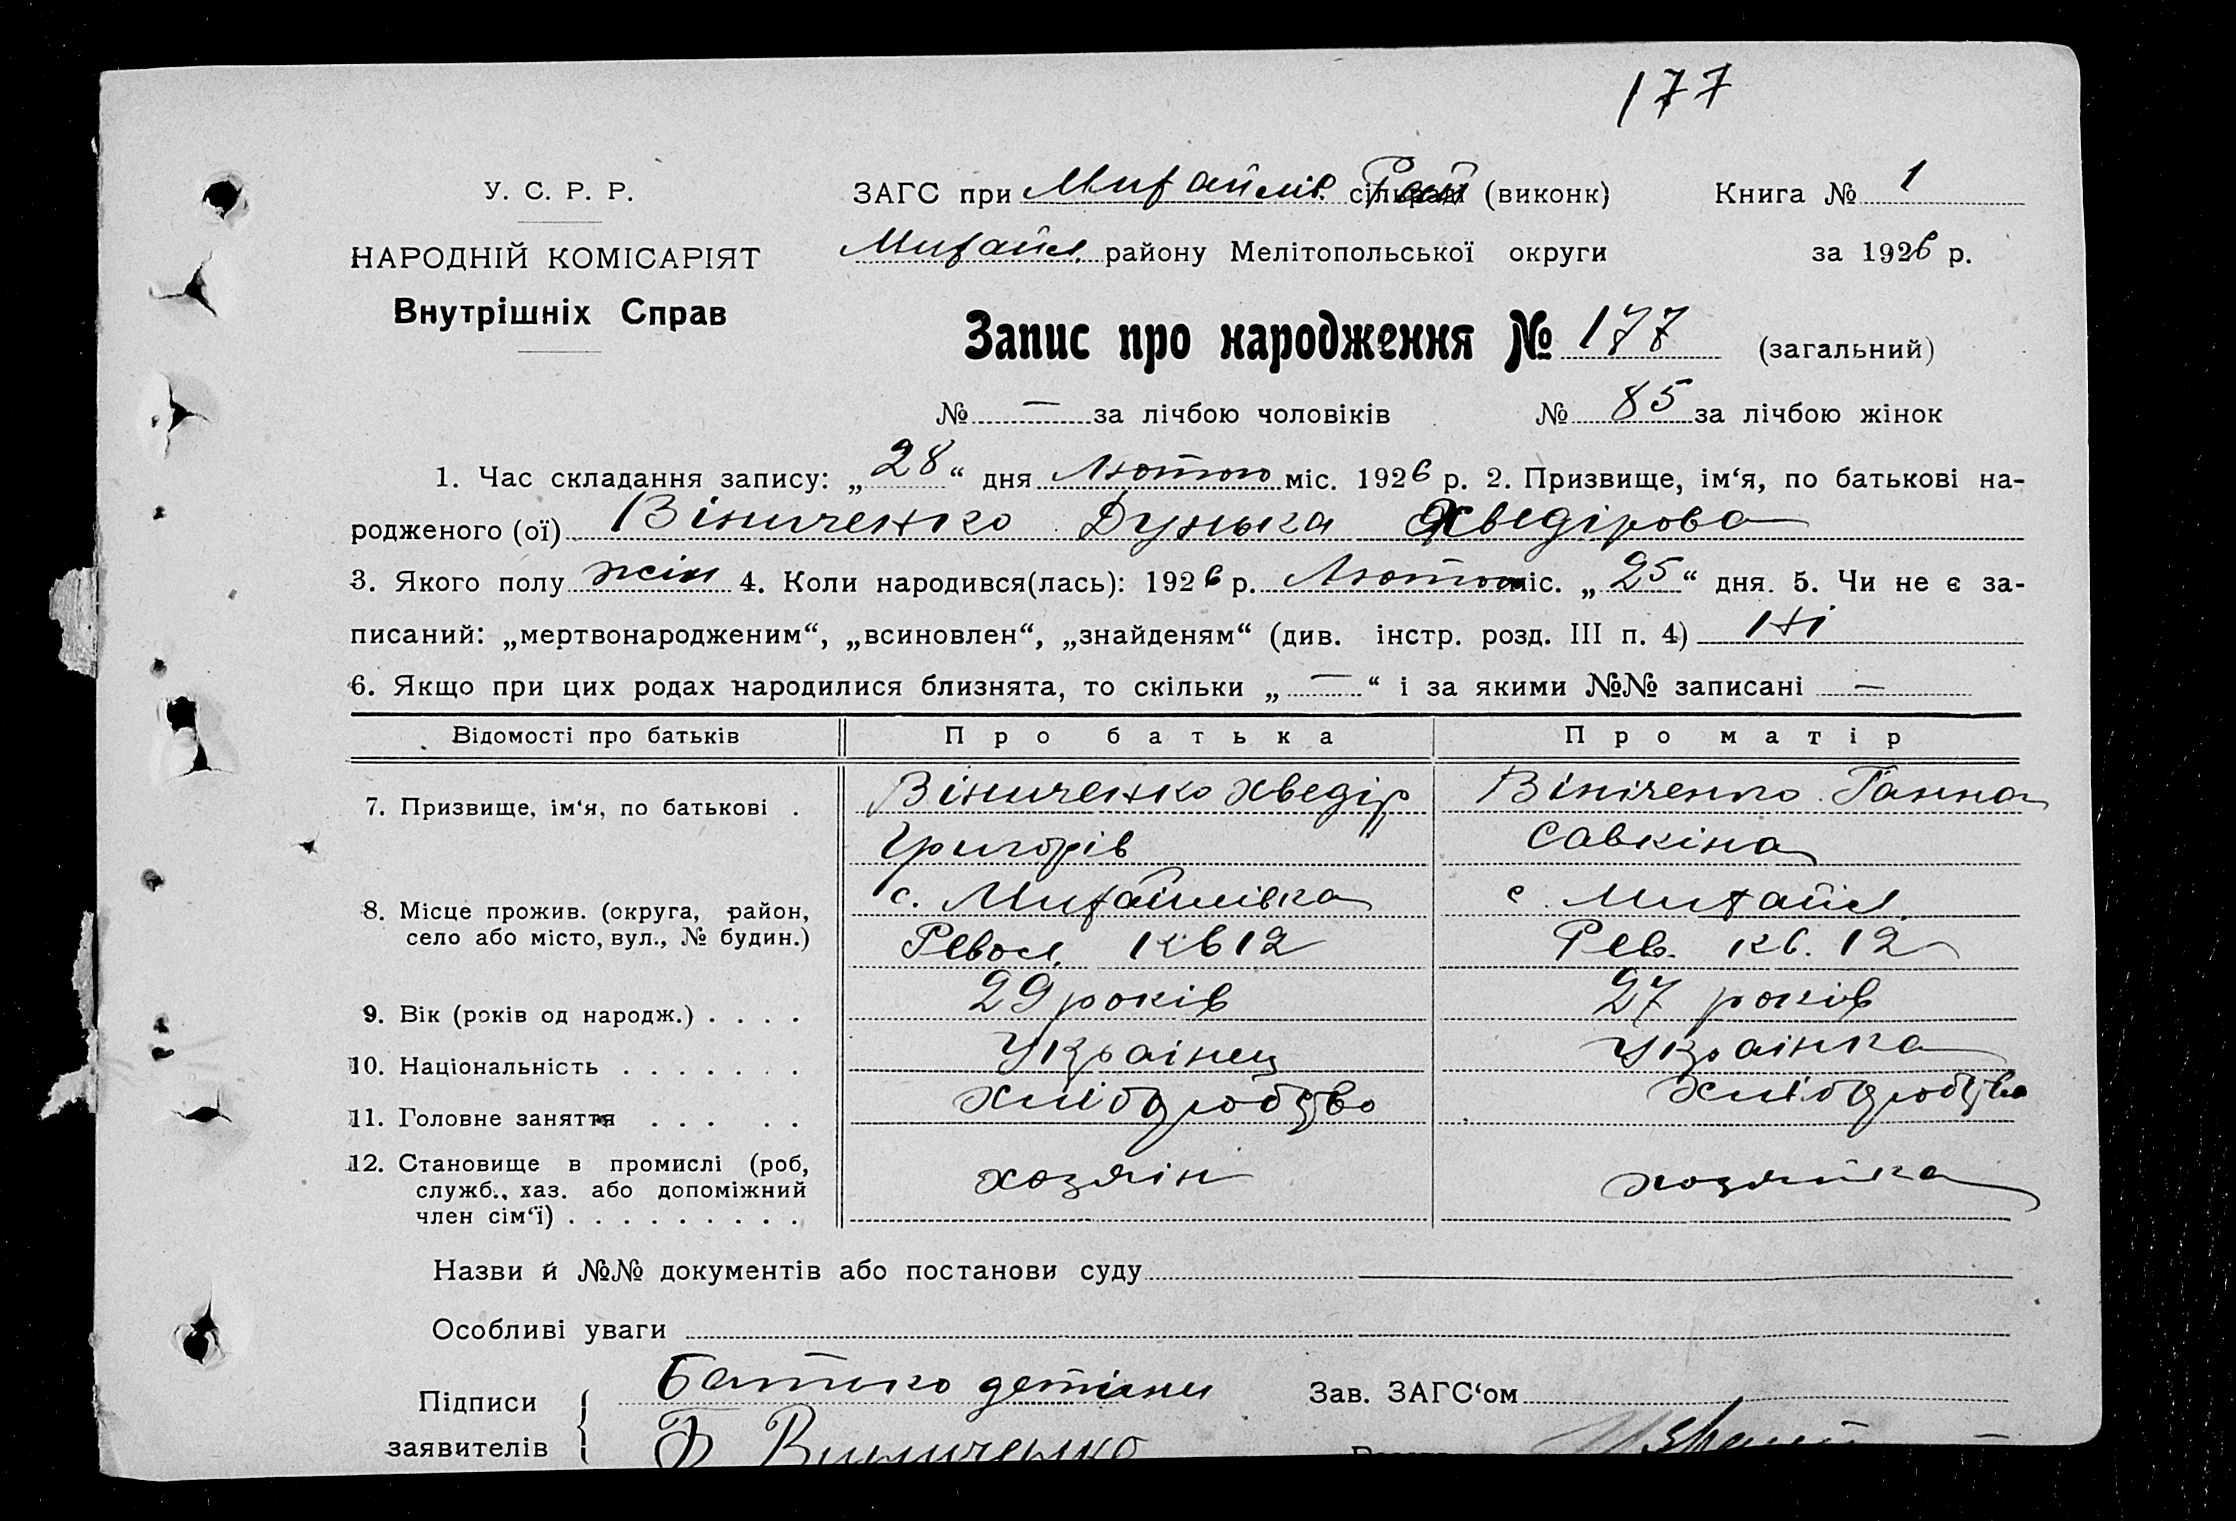 177
У. С. Р. Р.
НАРОДНІЙ КОМІСАРІЯТ
Внутрішніх Справ
ЗАГС при Михайлів. (виконк) Книга № 1
Михайл. району Мелітопольської округи за 1926 р.
Запис про народження № 177 (загальний)
№ — за лічбою чоловіків № 85 за лічбою жінок
1. Час складання запису: „28“ дня Лютого міс. 1926 р. 2. Призвище, ім‘я, по батькові на-
родженого (ої) Віниченко Дунька Хведірова
3. Якого полу жін 4. Коли народився(лась): 1926 р. Лютого міс. „25“ дня. 5. Чи не є за-
писаний: „мертвонародженим“, „всиновлен“, „знайденям“ (див. інстр. розд. III п. 4) Ні
6. Якщо при цих родах народилися близнята, то скільки „—“ і за якими №№ записані —
Відомості про батьків Про батька Про матір
7. Призвище, ім‘я, по батькові . Віниченко Хведір Вініченко Ганна
Григорів Савкіна
8. Місце прожив. (округа, район, с. Михайлівка с. Михайл.
село або місто, вул., № будин.) Револ. кв 12 Рев. кв. 12
9. Вік (років од народж.) . . . . 29 років 27 років
10. Національність . . . . . . . Українец Українка
11. Головне заняття . . . . . Хліборобство Хліборобство
12. Становище в промислі (роб, хозяін хозяйка
служб., хаз. або допоміжний
член сім‘ї) . . . . . . . . .
Назви й №№ документів або постанови суду
Особливі уваги
Підписи Батько детіни Зав. ЗАГС‘ом
заявителів Виниченко